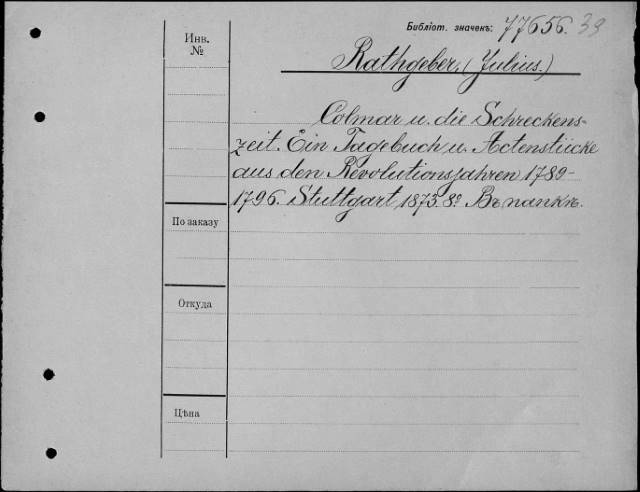 Библіот. значекъ: 77656. 39
Инв.
№
Rathgeber, (Julius.)
Colmar u. die Schreckens-
zeit. Ein Tagebuch u. Actenstücke
aus den Revolutionsjahren 1789-
1796. Stuttgart, 1873. 8º Въ папкѣ.
По заказу
Откуда
Цѣна